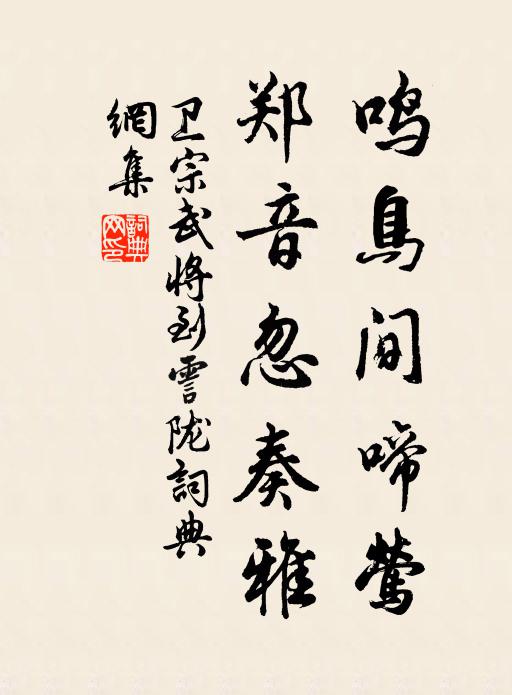 鸣鳥间啼莺
郑音忽奏雅
卫宗武将到霅陇詞典
網集
詞典
网印